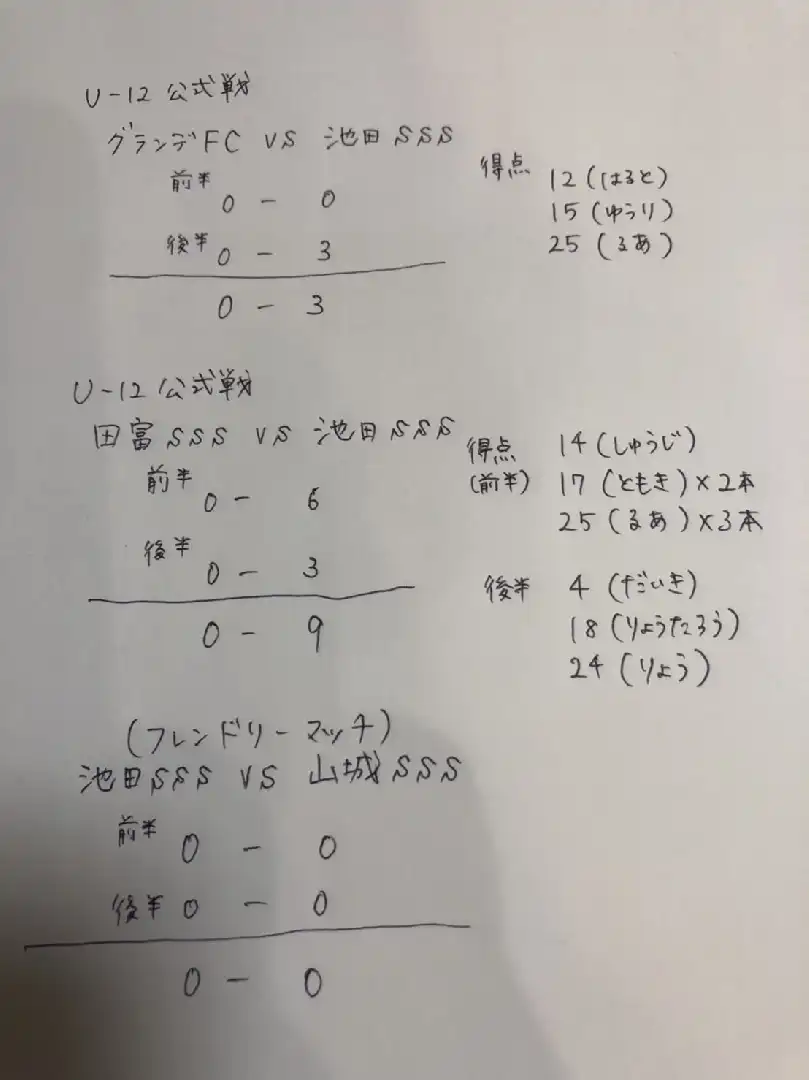 U-12 公式戦
グランデFC VS 池田SSS
前半 0 - 0
後半 0 - 3
0 - 3
得点 12(はると)
15(ゆうり)
25(るあ)
U-12 公式戦
田富SSS VS 池田SSS
前半 0 - 6
後半 0 - 3
0 - 9
得点 14(しゅうじ)
(前半) 17(ともき)×2本
25(るあ)×3本
後半 4(だいき)
18(りょうたろう)
24(りょう)
(フレンドリーマッチ)
池田SSS VS 山城SSS
前半 0 - 0
後半 0 - 0
0 - 0